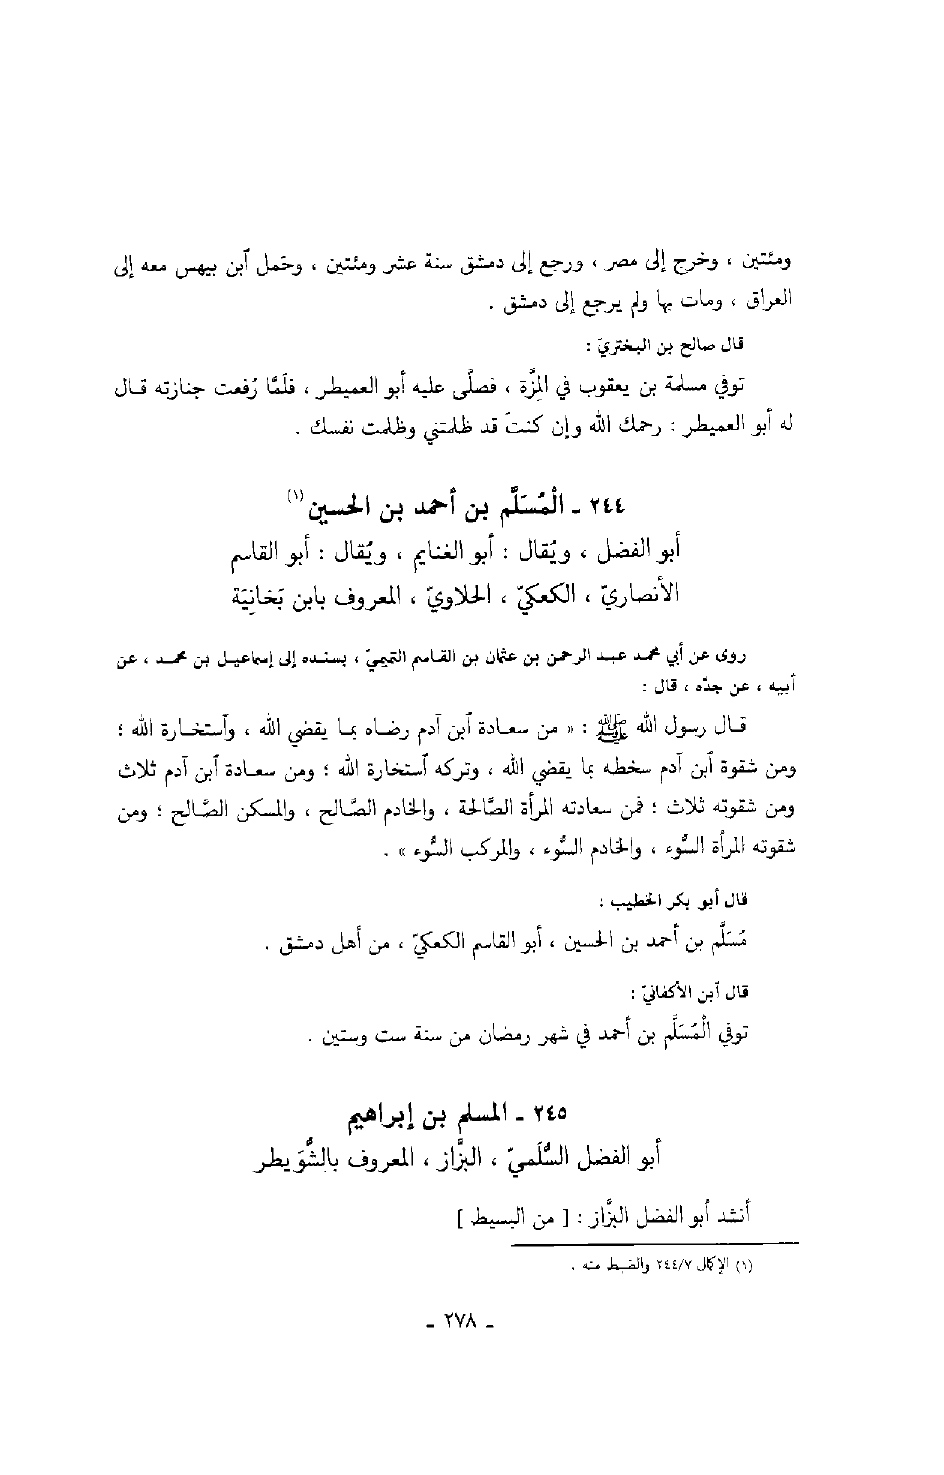 ومئتين ، وخرج إلى مصر ، ورجع إلى دمشق سنة عشر ومئتين ، وحَمل ٱبن بيهس معه إلى
العراق ، ومات بها ولم يرجع إلى دمشق .
قال صالح بن البختريّ :
توفي مسلمة بن يعقوب في المِزَّة ، فصلَّى عليه أبو العميطر ، فلَمَّا رُفعت جنازته قال
له أبو العميطر : رحمك الله وإن كنتَ قد ظلمتني وظلمت نفسك .
٢٤٤ ـ الْمُسَلَّم بن أحمد بن الحسين(١)
أبو الفضل ، ويُقال : أبو الغنايم ، ويُقال : أبو القاسم
الأنصاريّ ، الكعكيّ ، الحلاويّ ، المعروف بابن بَخانِيَة
روى عن أبي محمد عبد الرحمن بن عثمان بن القاسم التميميّ ، بسنده إلى إسماعيل بن محمد ، عن
أبيه ، عن جدّه ، قال :
قال رسول الله ﷺ : « من سعادة ٱبن آدم رضاه بما يقضي الله ، وٱستخارة الله ؛
ومن شقوة ٱبن آدم سخطه بما يقضي الله ، وتركه ٱستخارة الله ؛ ومن سعادة ٱبن آدم ثلاث
ومن شقوته ثلاث ؛ فمن سعادته المرأة الصَّالحة ، والخادم الصَّالح ، والمسكن الصَّالح ؛ ومن
شقوته المرأة السُّوء ، والخادم السُّوء ، والمركب السُّوء » .
قال أبو بكر الخطيب :
مُسَلَّم بن أحمد بن الحسين ، أبو القاسم الكعكيّ ، من أهل دمشق .
قال ٱبن الأكفانيّ :
توفي الْمُسَلَّم بن أحمد في شهر رمضان من سنة ست وستين .
٢٤٥ ـ المسلم بن إبراهيم
أبو الفضل السُّلَميّ ، البزَّاز ، المعروف بالشُّوَيطر
أنشد أبو الفضل البزَّاز : [ من البسيط ]
(١) الإكمال ٢٤٤/٧ والضبط منه .
ـ ٢٧٨ ـ